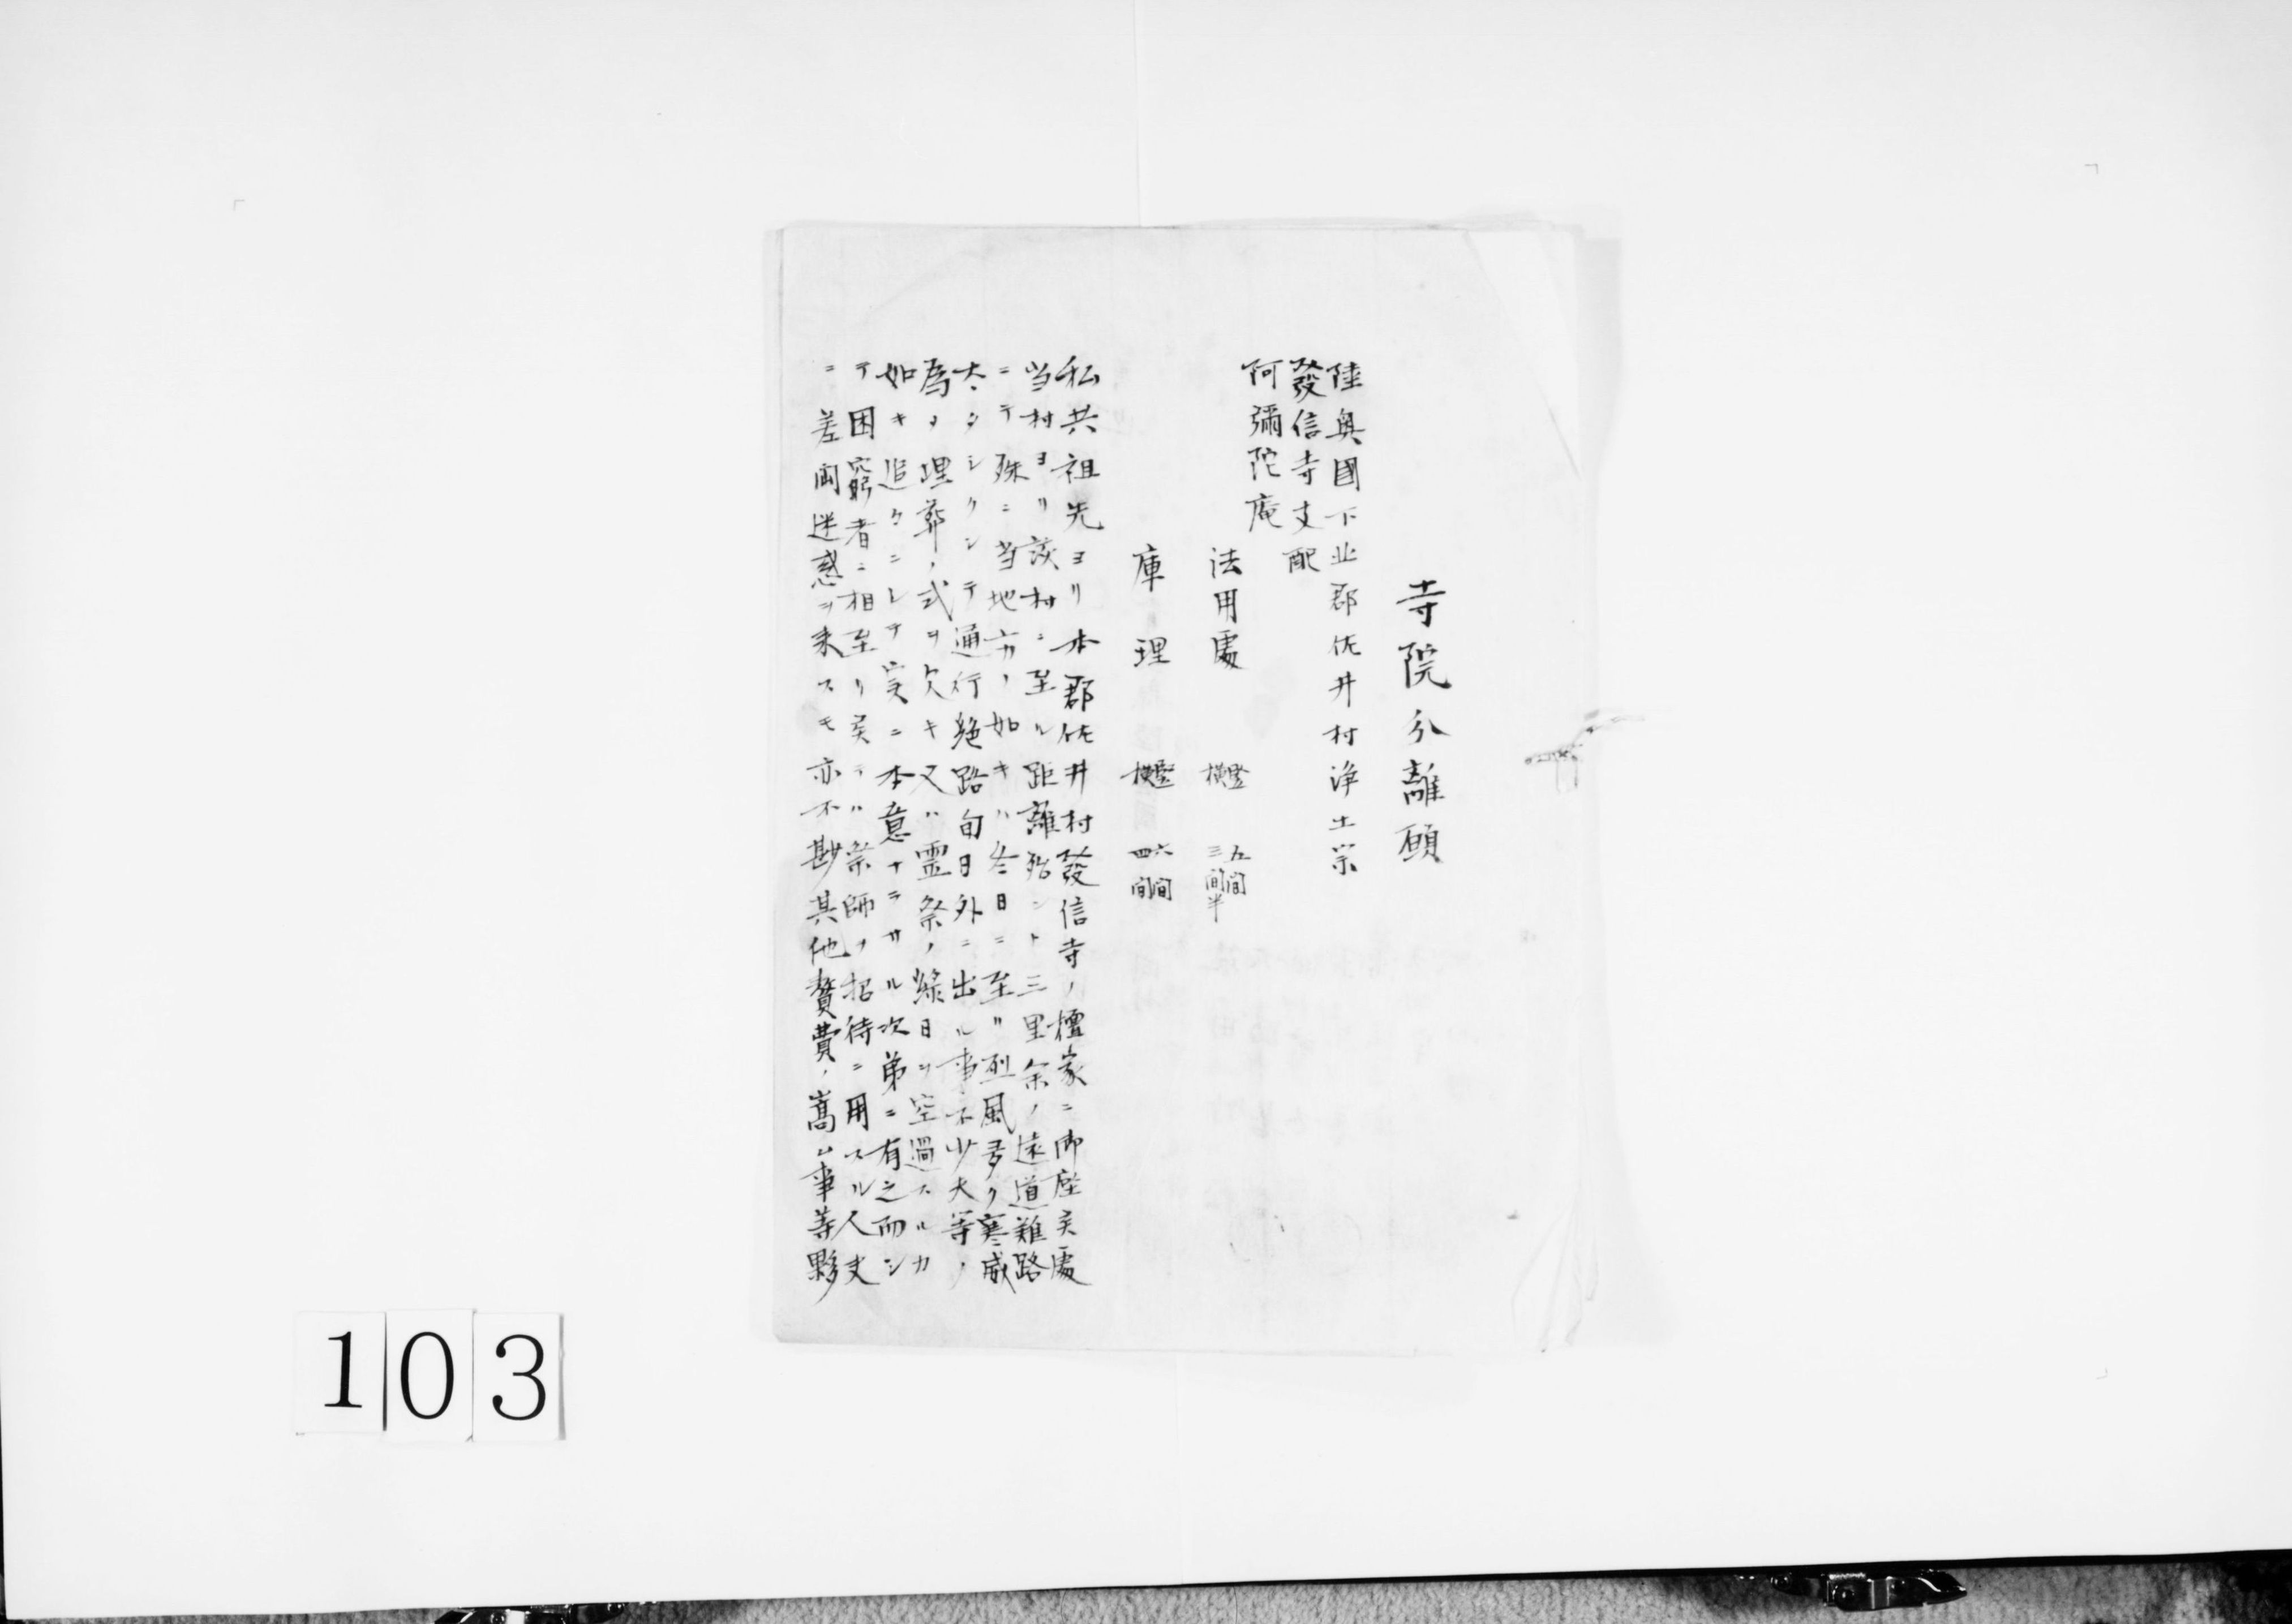 寺院分離願
陸奥國下北郡佐井村浄土宗
發信寺支配
阿彌陀庵
法用處 竪 五間 横 三間半
庫理 竪 六間 横 四間
私共祖先ヨリ本郡佐井村發信寺ノ檀家ニ御座候處
当村ヨリ該村ニ至ル距離殆ント三里余ノ遠道難路
ニテ殊ニ当地方ノ如キハ冬日ニ至リ烈風多ク寒威
太タシクシテ通行絶路旬日外ニ出ル事不少夫等ノ
為メ埋葬ノ式ヲ欠キ又ハ霊祭ノ縁日ヲ空過スルカ
如キ追々ニシテ実ニ本意ナラサル次第ニ有之而シ
テ困窮者ニ相至リ候テハ宗師ノ招待ニ用スル人夫
ニ差閊迷惑ヲ来スモ亦不尠其他贅費ノ嵩ム事等夥
103